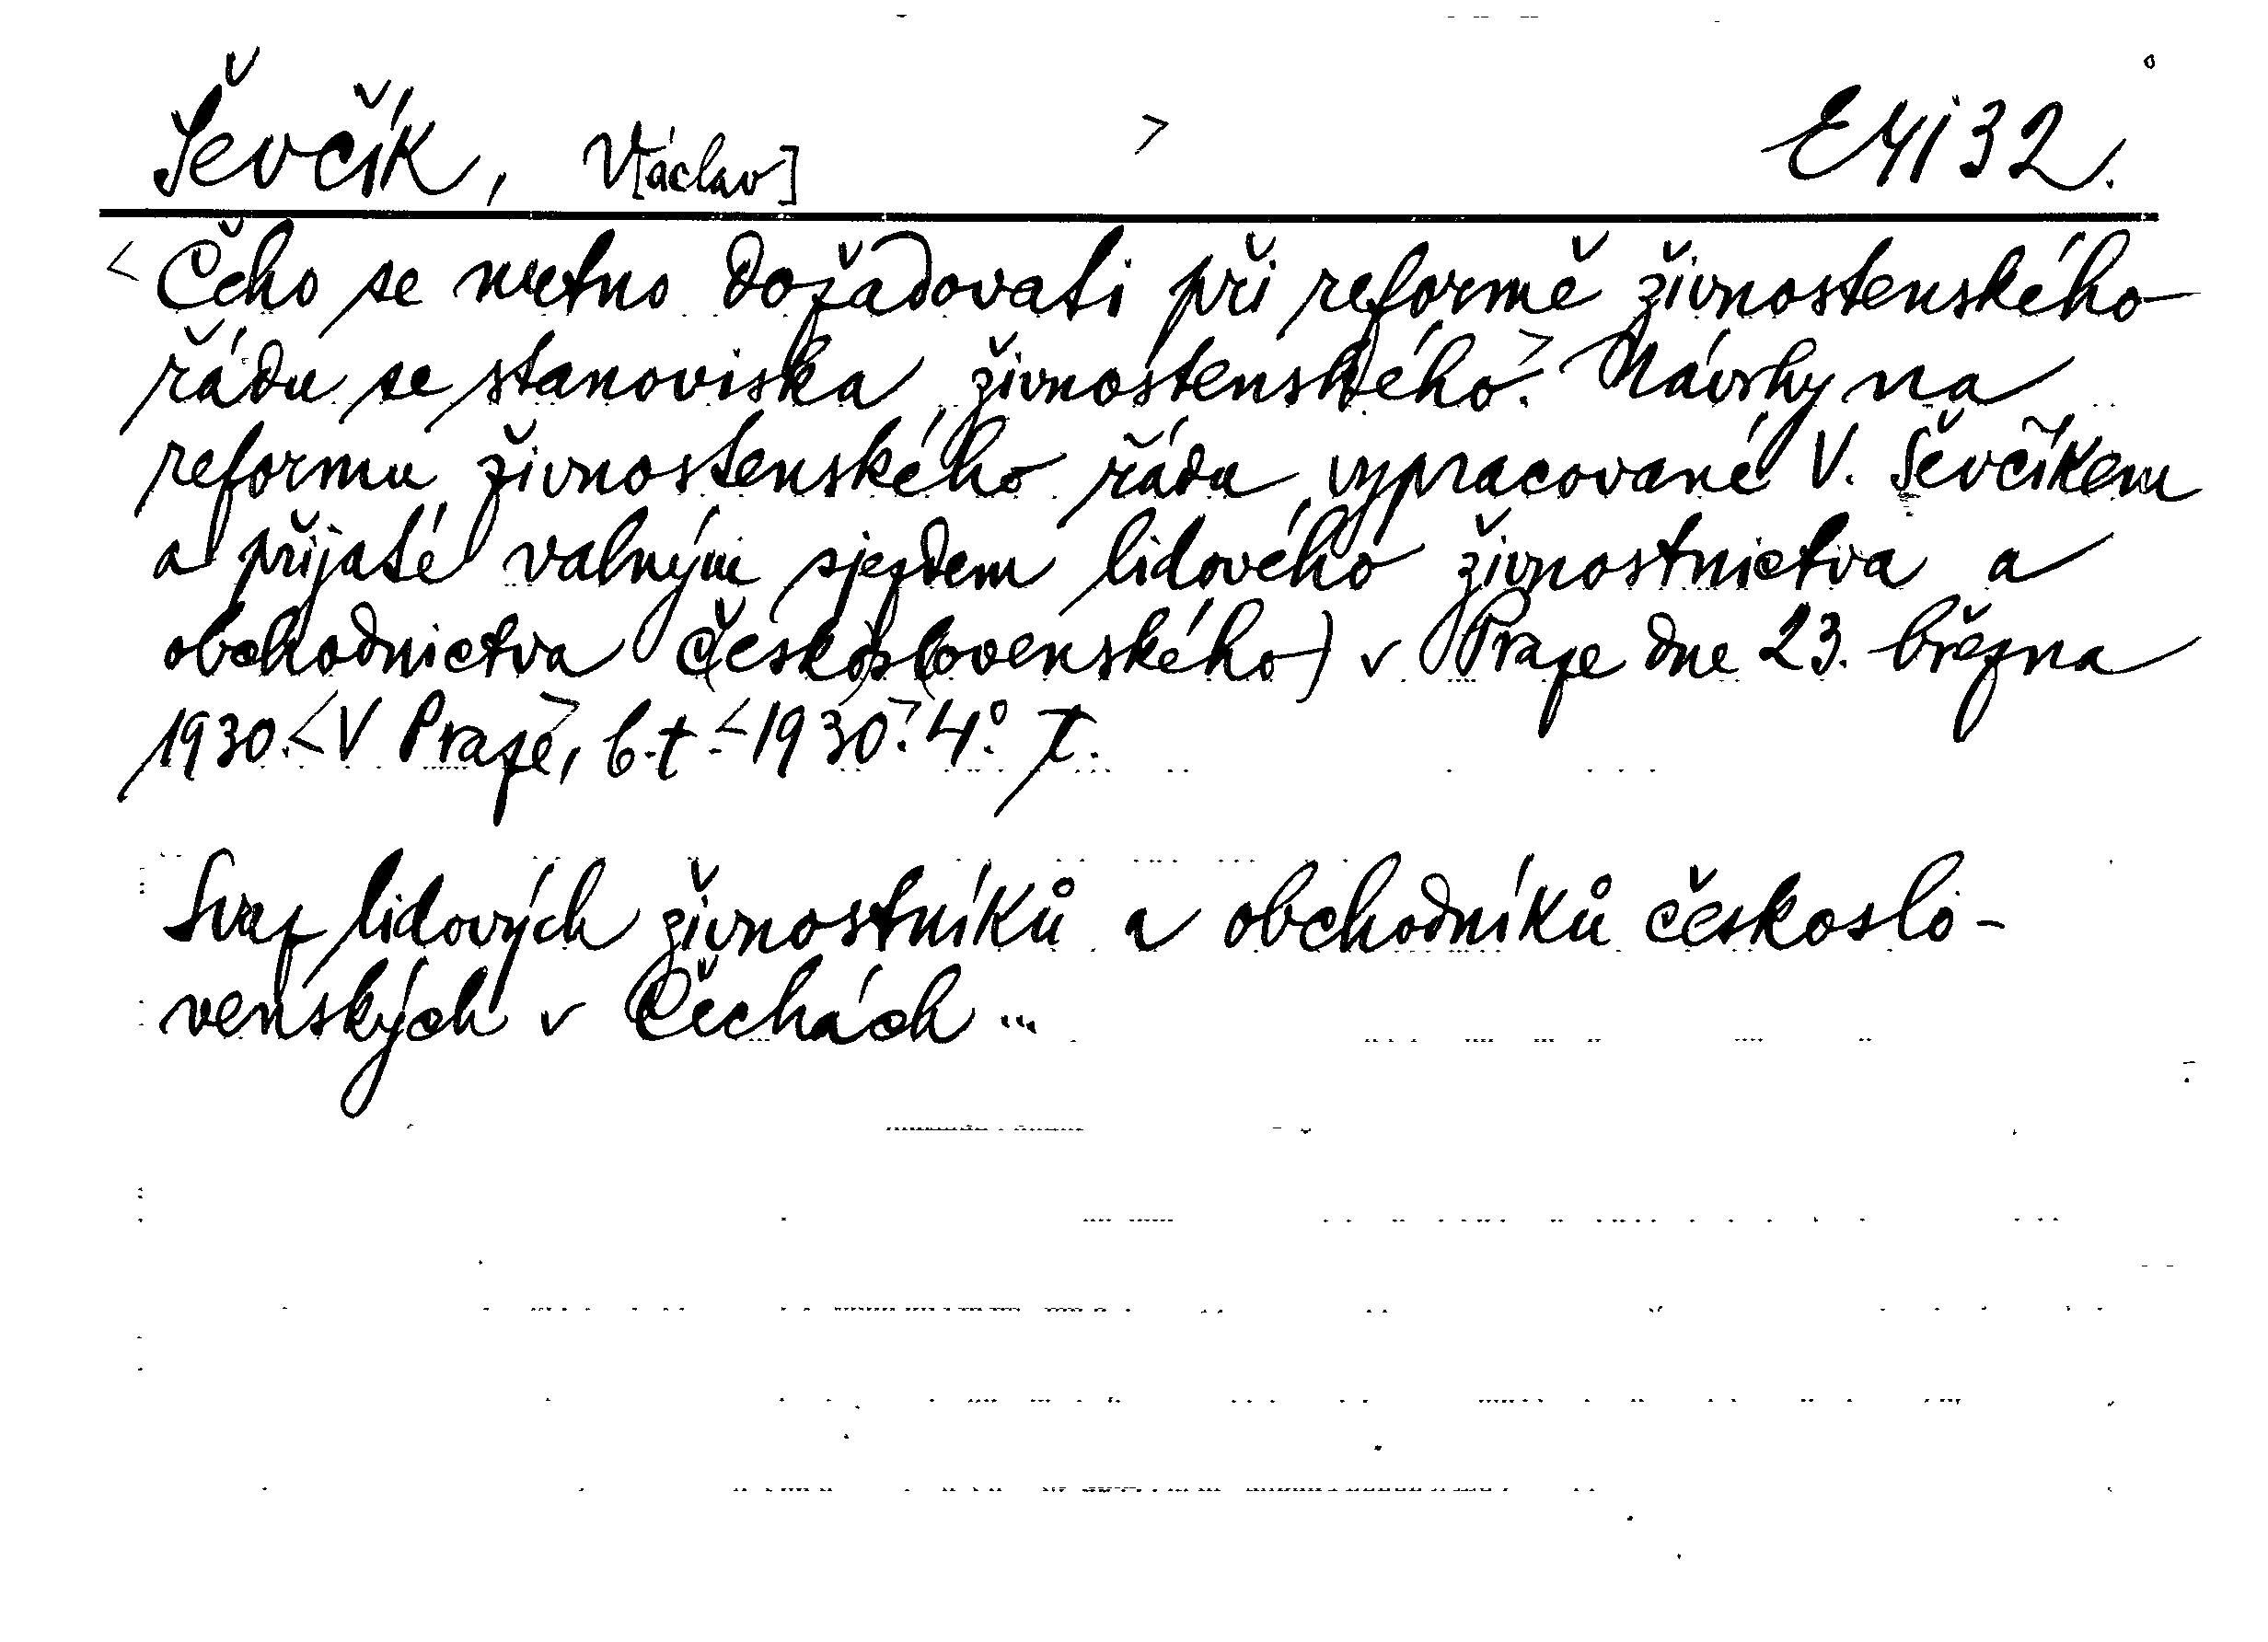 Ševčík, V[áclav] > E 4i 32.
< Čeho se nutno dožadovati při reformě živnostenského
řádu se stanoviska živnostenského>. Návrhy na
reformu živnostenského řádu vypracované V. Ševčíkem
a přijaté valným sjezdem lidového živnostnictva a
obchodnictva (česko)slo(venského) v Praze dne 23. března
1930. <V Praze>, b.t. <1930>. 4°. T.
Svaz lidových živnostníků a obchodníků českoslo-
venských v Čechách ...